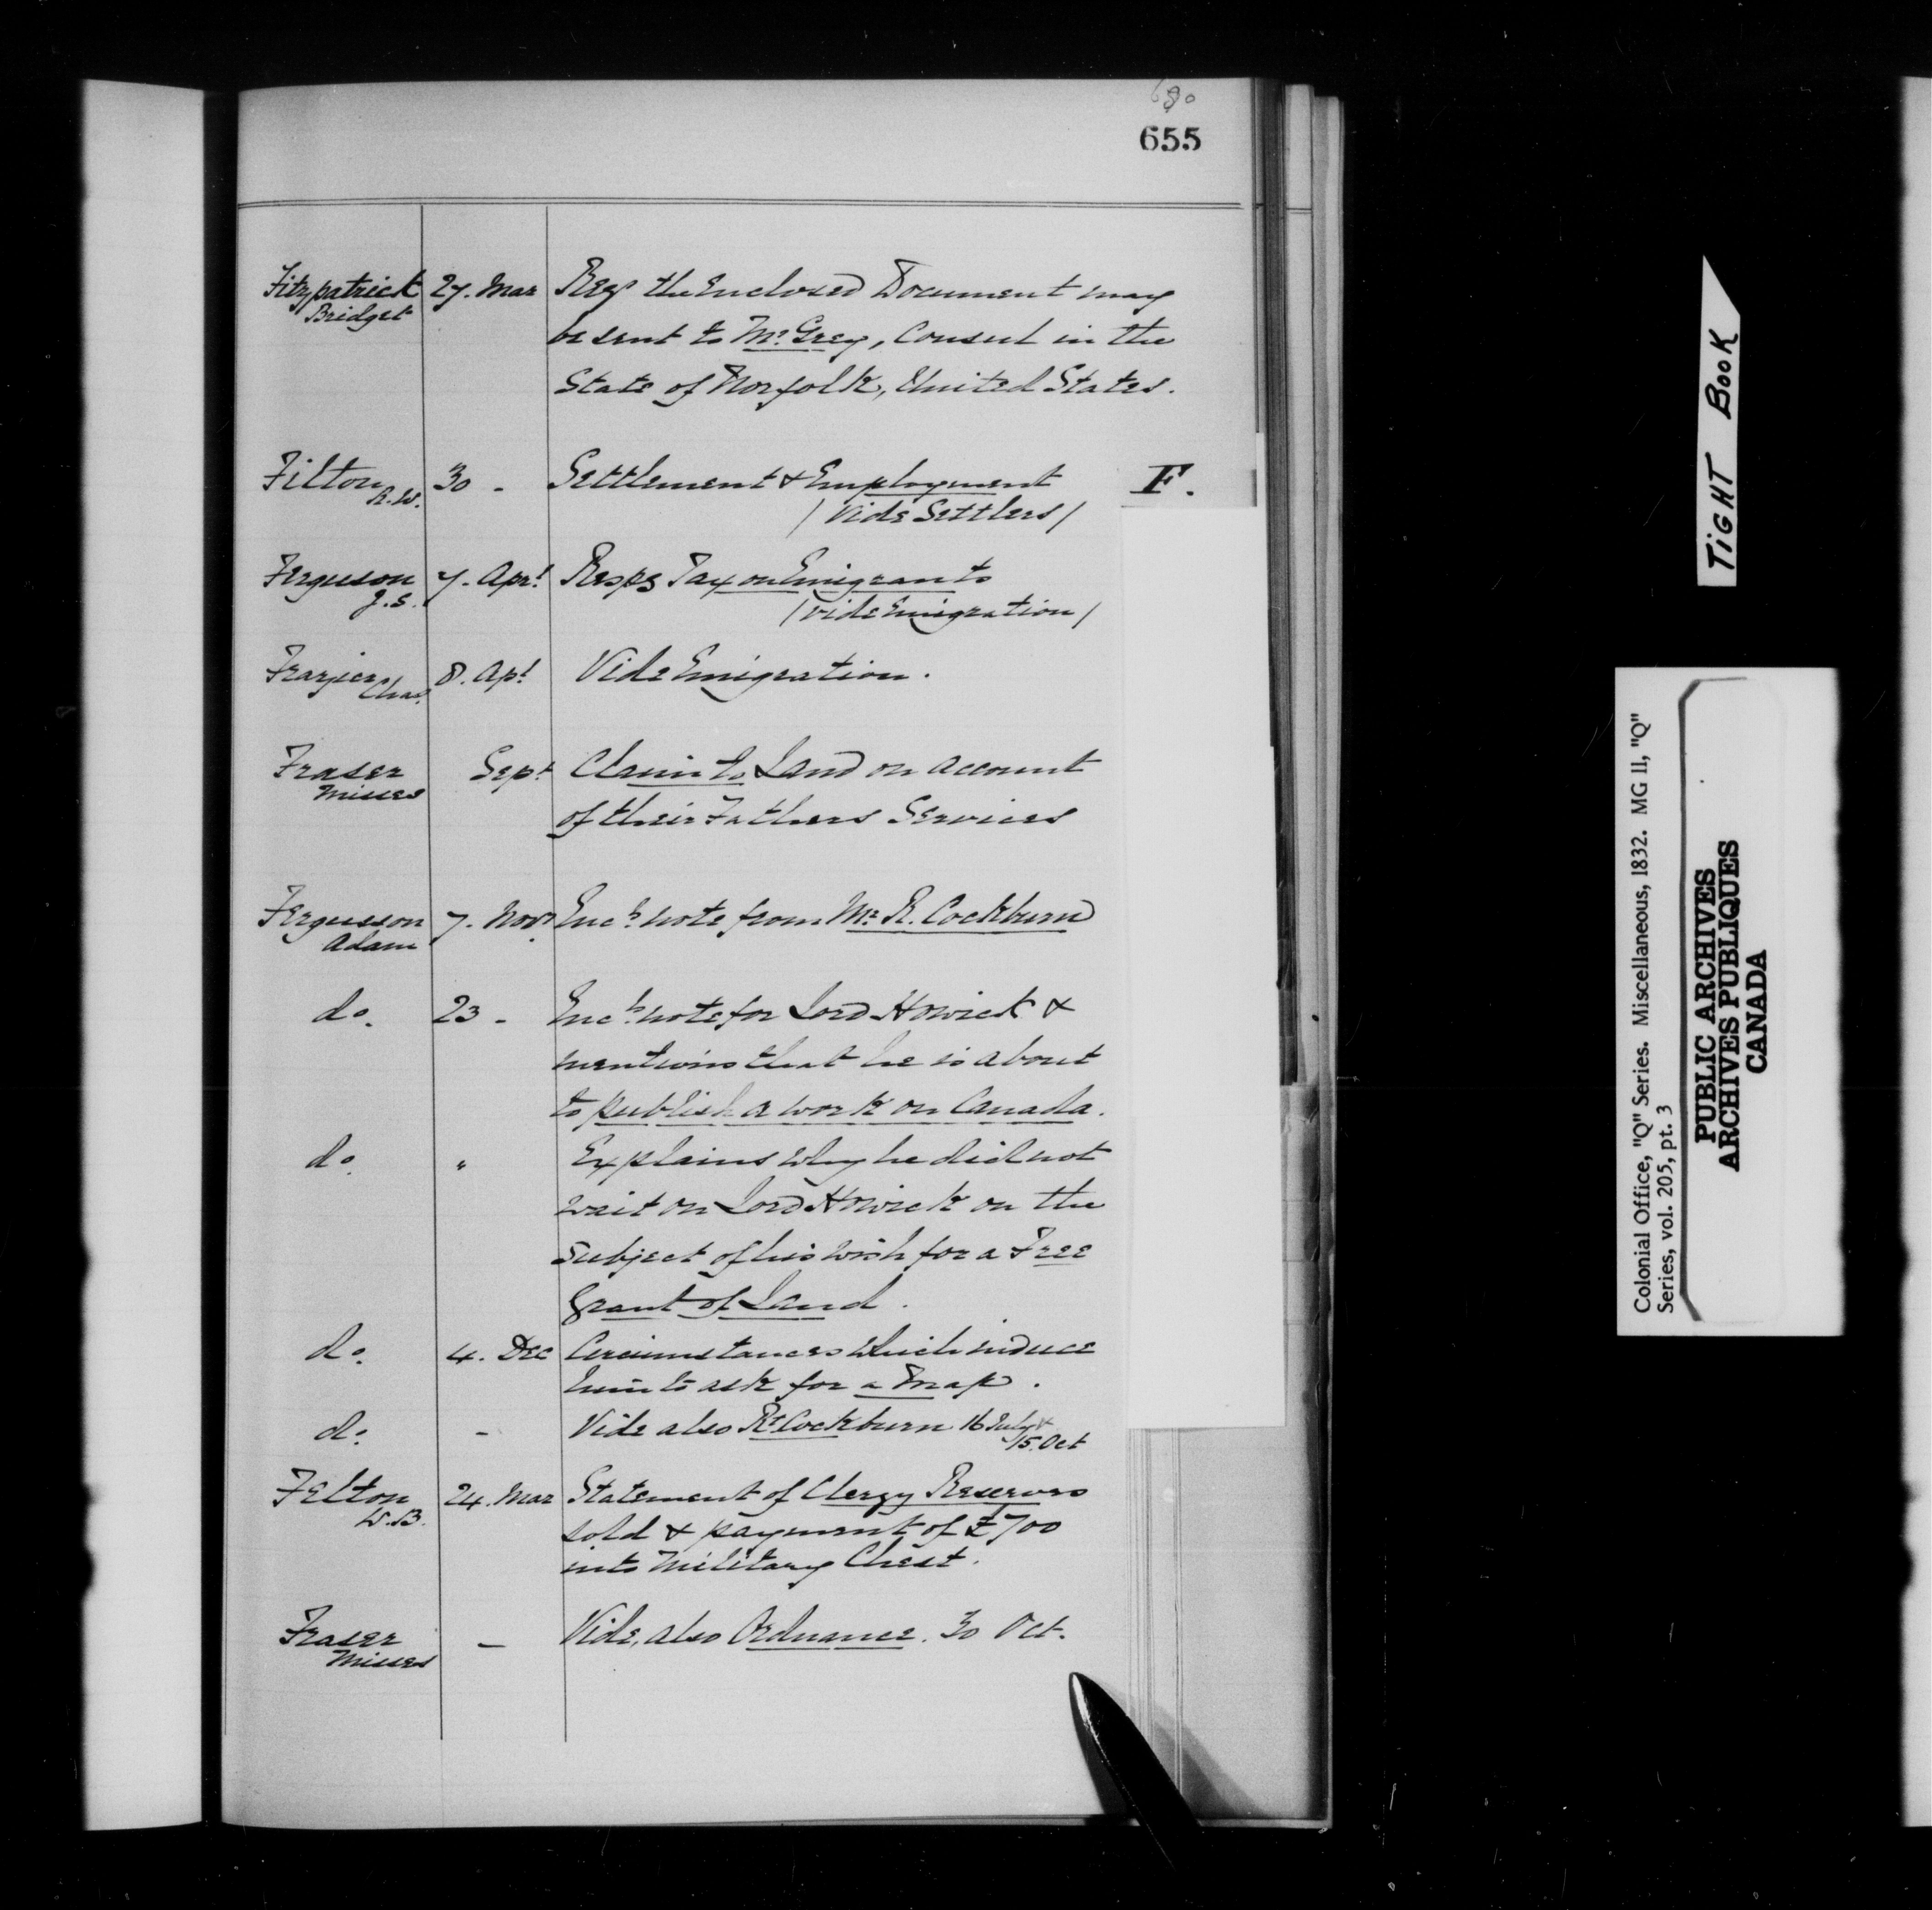 680
655
Fitzpatrick Bridget 27. Mar Reqs the Enclosed Document may
be sent to Mr. Grey, Consul in the
State of Norfolk, United States.
Filton R.W. 30 - Settlement & Employment
/ Vide Settlers /
F.
Ferguson J.S. 7. Aprl Respg Tax on Emigrants
/ Vide Emigration /
Frazier Chas. 8. Apl Vide Emigration.
Fraser Misses Sept Claim to Land on account
of their Fathers Services
Fergusson Adam 7. Novr Encg note from Mr. R. Cockburn
do. 23 - Encg note for Lord Howick &
mentions that he is about
to publish a work on Canada.
do. " Explains why he did not
wait on Lord Howick on the
subject of his wish for a Free
Grant of Land.
do. 4. Dec Circumstances which induce
him to ask for a Map.
do. - Vide also Rt Cockburn 16 July &
15. Oct
Felton W.B. 24. Mar Statement of Clergy Reserves
sold & payment of £700
into Military Chest.
Fraser Misses - Vide, also Ordnance. 30 Oct.
TIGHT BOOK
Colonial Office, "Q" Series. Miscellaneous, 1832. MG 11, "Q"
Series, vol. 205, pt. 3
PUBLIC ARCHIVES
ARCHIVES PUBLIQUES
CANADA